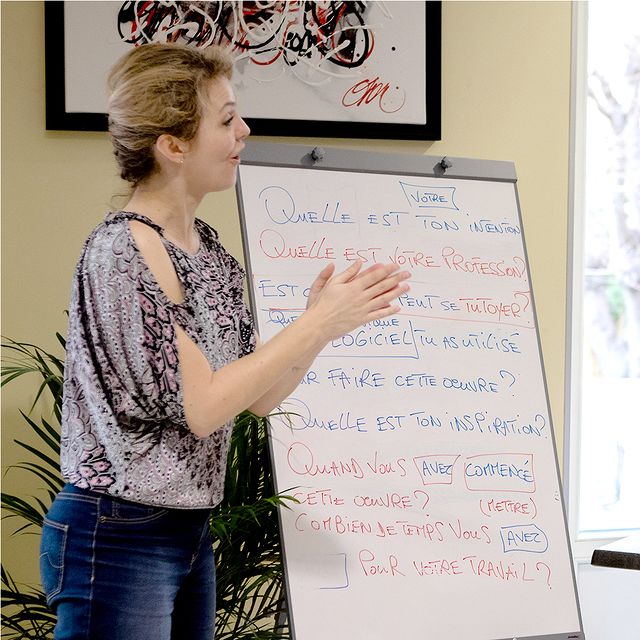 VOTRE
QUELLE EST TON INTENTION
QUELLE EST VOTRE PROFESSION?
EST PEUT SE TUTOYER?
LOGICIEL TU AS UTILISÉ
FAIRE CETTE OEUVRE?
QUELLE EST TON INSPIRATION?
QUAND VOUS AVEZ COMMENCÉ
CETTE OEUVRE? (METTRE)
COMBIEN DE TEMPS VOUS AVEZ
POUR VOTRE TRAVAIL?